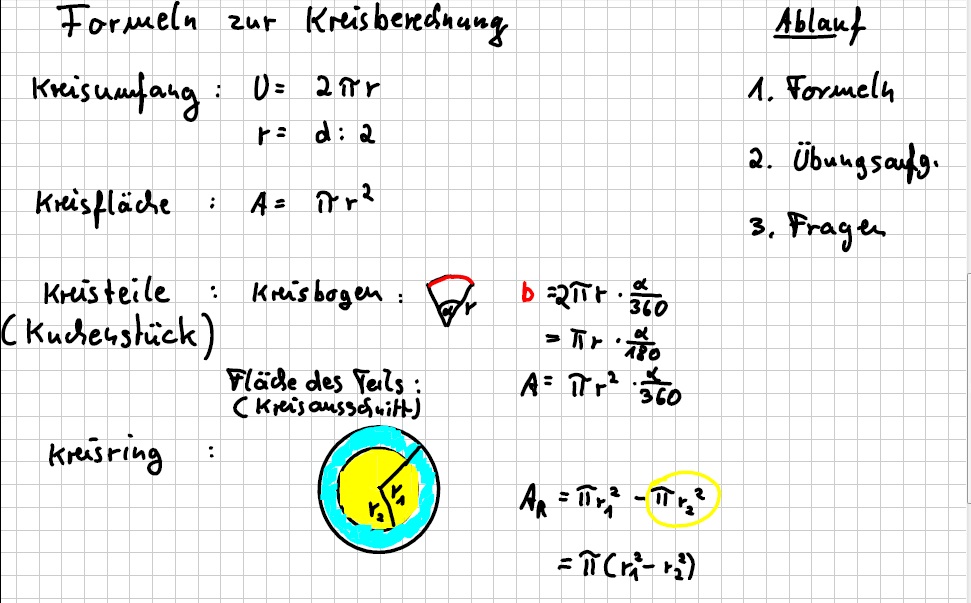 Formeln zur Kreisberechnung
Kreisumfang : U = 2πr
r = d : 2
Kreisfläche : A = πr²
Kreisteile : Kreisbogen : α r b = 2πr · α/360
(Kuchenstück) = πr · α/180
Fläche des Teils : A = πr² · α/360
(Kreisausschnitt)
Kreisring : r₁ r₂ A_R = πr₁² - πr₂²
= π(r₁² - r₂²)
Ablauf
1. Formeln
2. Übungsaufg.
3. Fragen